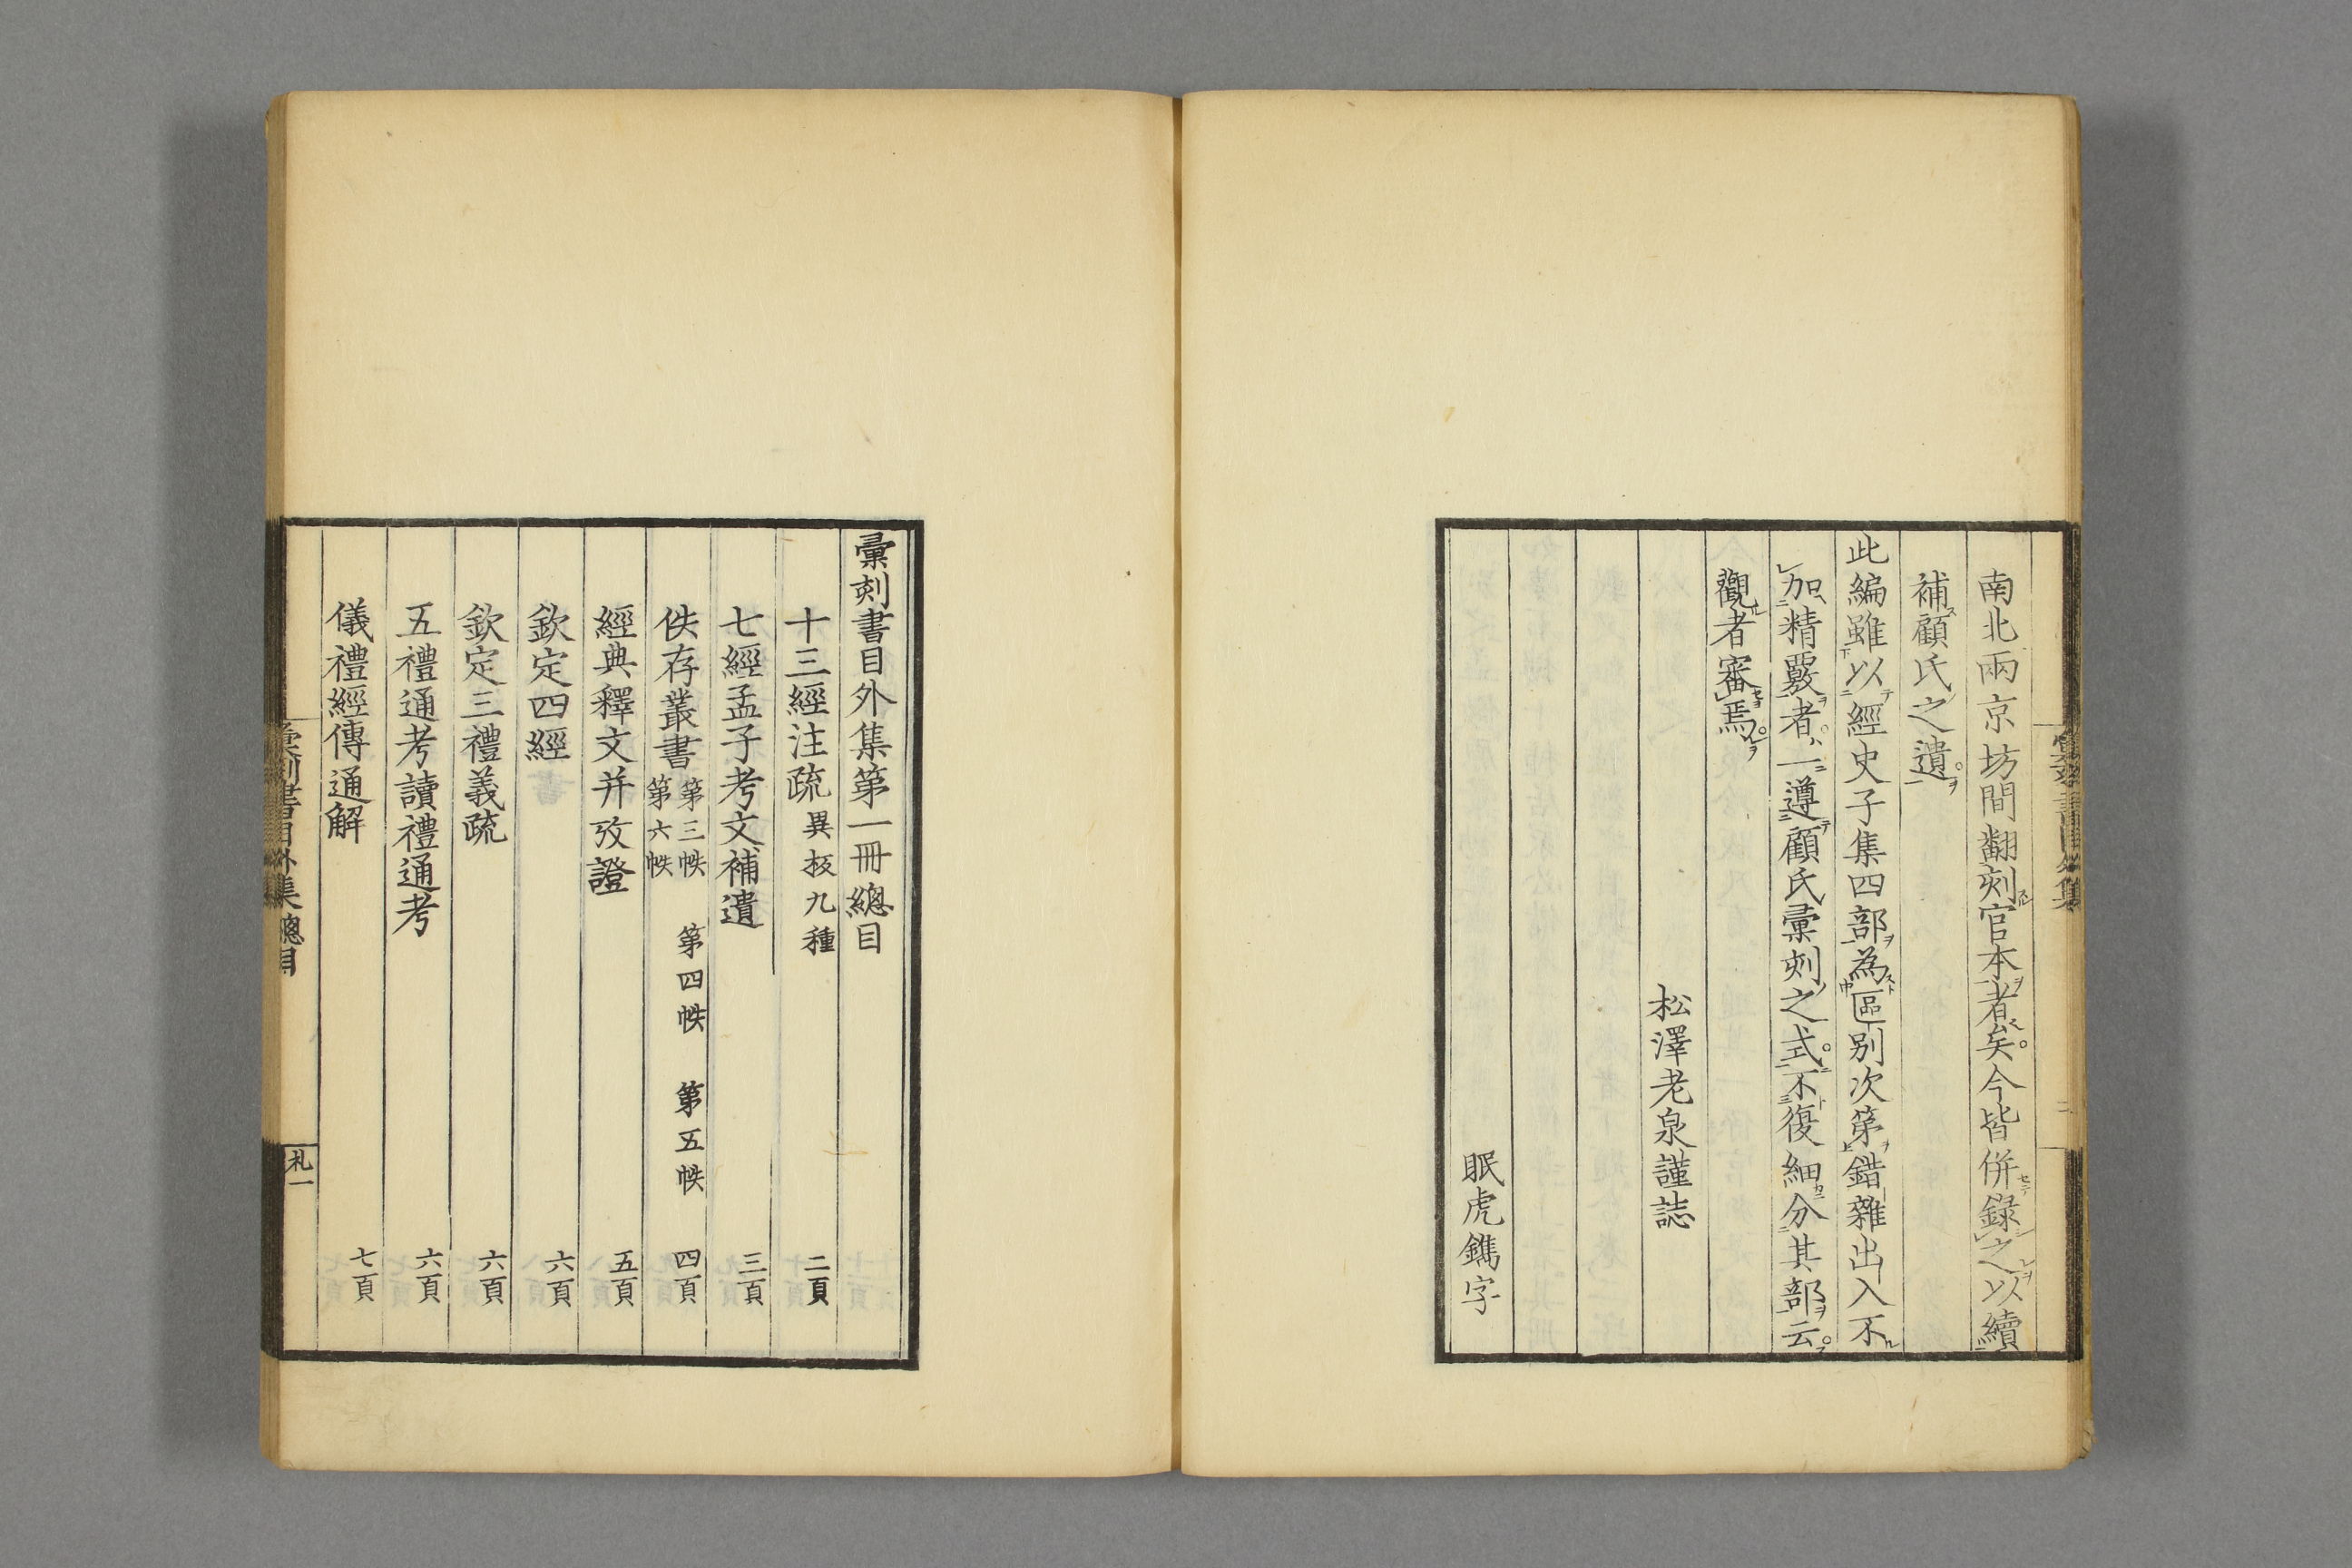 南北兩京坊間翻刻官本者矣今皆併録之以續
補顧氏之遺
此編雖以經史子集四部為區別次第錯雜出入不
加精覈者一遵顧氏彙刻之式不復細分其部云
觀者審焉
松澤老泉謹誌
眠虎鐫字
彙刻書目外集第一冊總目
十三經注疏 異板九種 二頁
七經孟子考文補遺 三頁
佚存叢書 第三帙 第四帙 第五帙 第六帙 四頁
經典釋文并攷證 五頁
欽定四經 六頁
欽定三禮義疏 六頁
五禮通考讀禮通考 六頁
儀禮經傳通解 七頁
彙刻書目外集總目 礼一